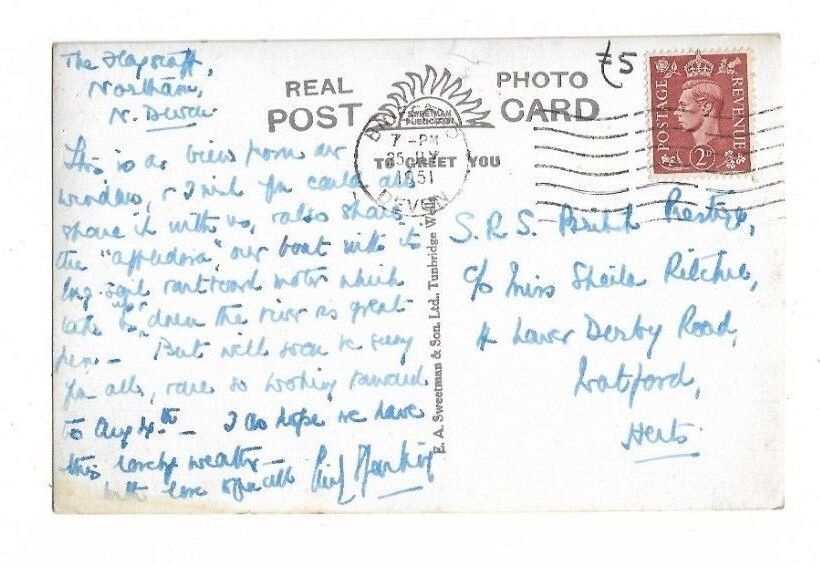 The Flagstaff,
Northam,
N. Devon
REAL PHOTO
POST CARD
SWEETMAN
PUBLICATION
TO GREET YOU
£5
7 - PM
25 JLY
1951
DEVON
POSTAGE REVENUE
2D
This is a view from our
window, & I wish you could all
share it with us, & also share
the "Appledora", our boat with its
lug-sail & outboard motor which
up & down the river is great
fun - But will soon be seeing
you all, & are so looking forward
to Aug 4th - I do hope we have
this lovely weather -
with love to you all
E. A. Sweetman & Son, Ltd., Tunbridge Wells
S.R.S. British Prestige,
c/o Miss Sheila Ritchie,
4 Lower Derby Road,
Watford,
Herts.